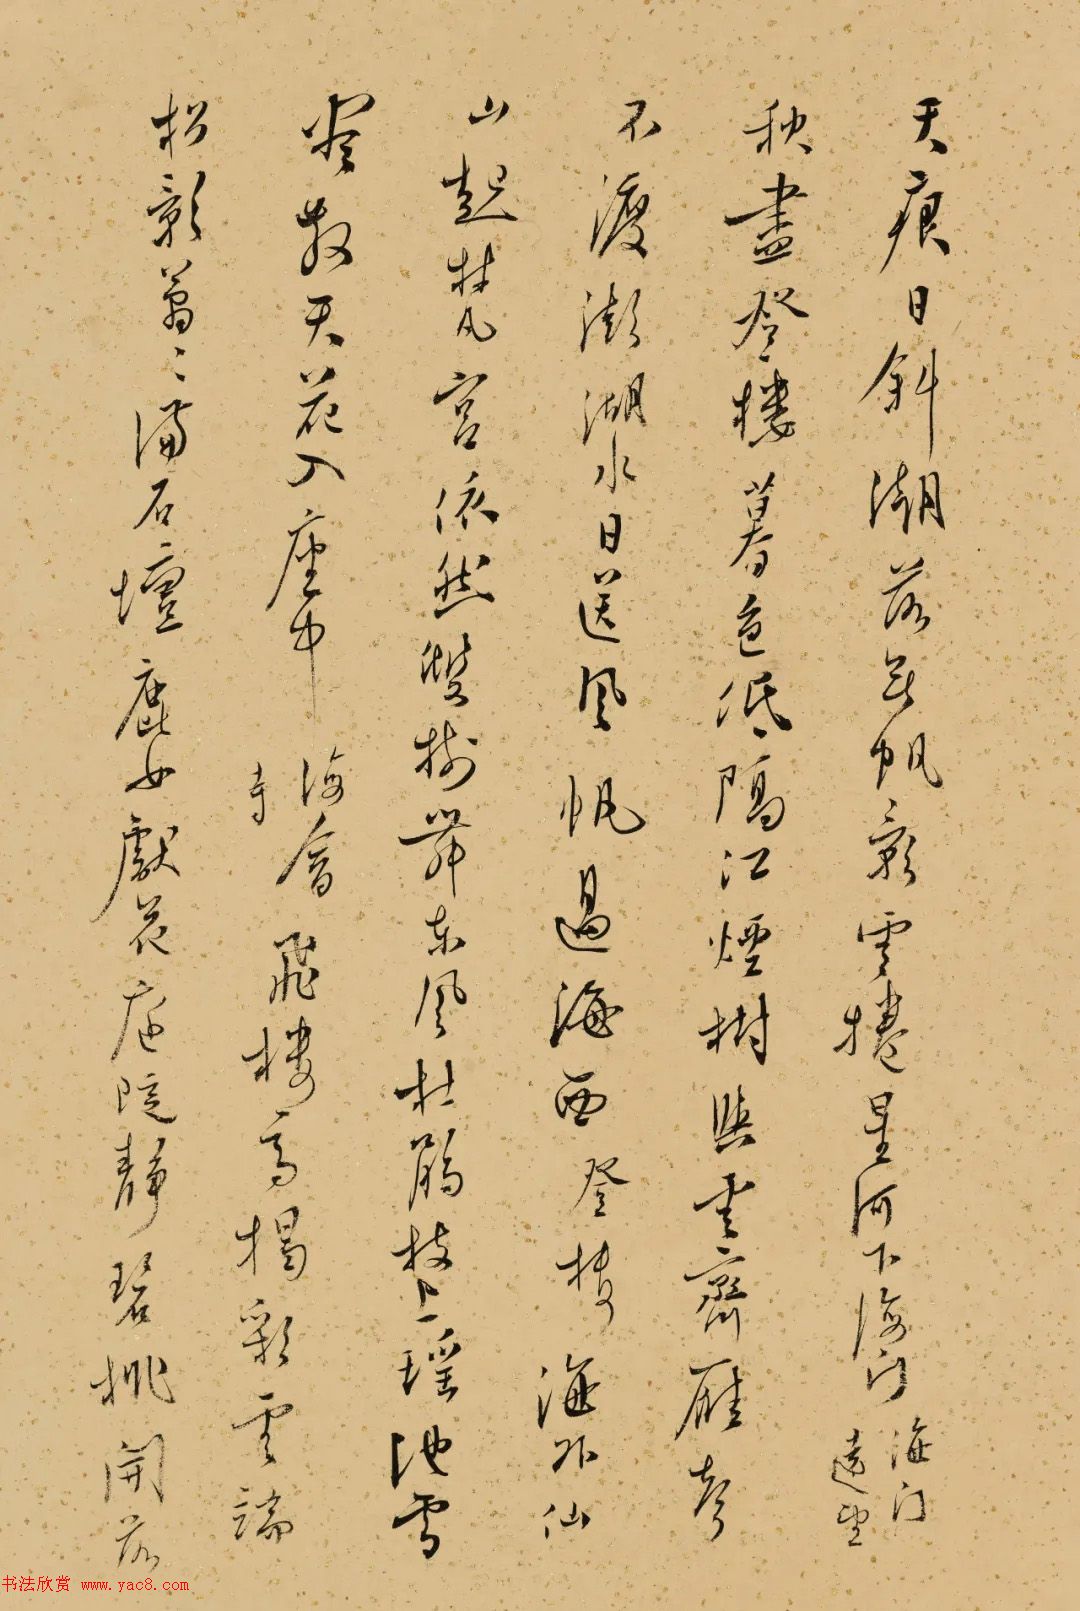 天痕日斜潮落无帆影雲捲星河下海门
海门
遠望
秋盡登樓暮色低隔江煙樹與雲齊雁聲
不渡澎湖水日送風帆過海西登樓海外仙
山起梵宮依然雙樹舞東風杜鵑枝上瑶池雪
散天花入座中
海會
寺
飛樓高揭彩雲端
松影滿石壇鹿女獻花庭院靜碧桃開落
书法欣赏 www.yac8.com